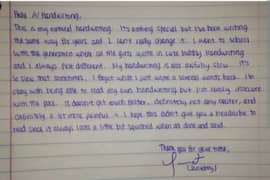 Dear A1 Handwriting,
This is my natural handwriting. It's nothing special but I've been writing
the same way for years and I can't really change it. I went to school
with the generation where all the girls wrote in cute bubbly handwriting
and I always felt different. My handwriting is also awfully slow. It's
so slow that sometimes I forget what I just wrote a several words back. I'm
okay with being able to read my own handwriting but I'm really insecure
with the pace. It doesn't get much better, definitely not any neater, and
definitely a lot more painful. I hope this didn't give you a headache to
read since it always looks a little bit squished when all done and said.
Thank you for your time,